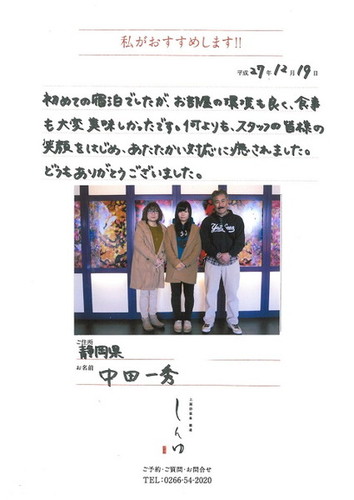 私がおすすめします!!
平成27年12月19日
初めての宿泊でしたが、お部屋の環境も良く、食事
も大変美味しかったです。何よりも、スタッフの皆様の
笑顔をはじめ、あたたかい対応に癒されました。
どうもありがとうございました。
ご住所
静岡県
お名前
中田一秀
しんゆ
ご予約・ご質問・お問合せ
TEL:0266-54-2020